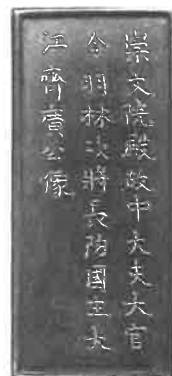 崇文院殿故中大夫大官
令羽林次將長防國主大
江齊廣公像